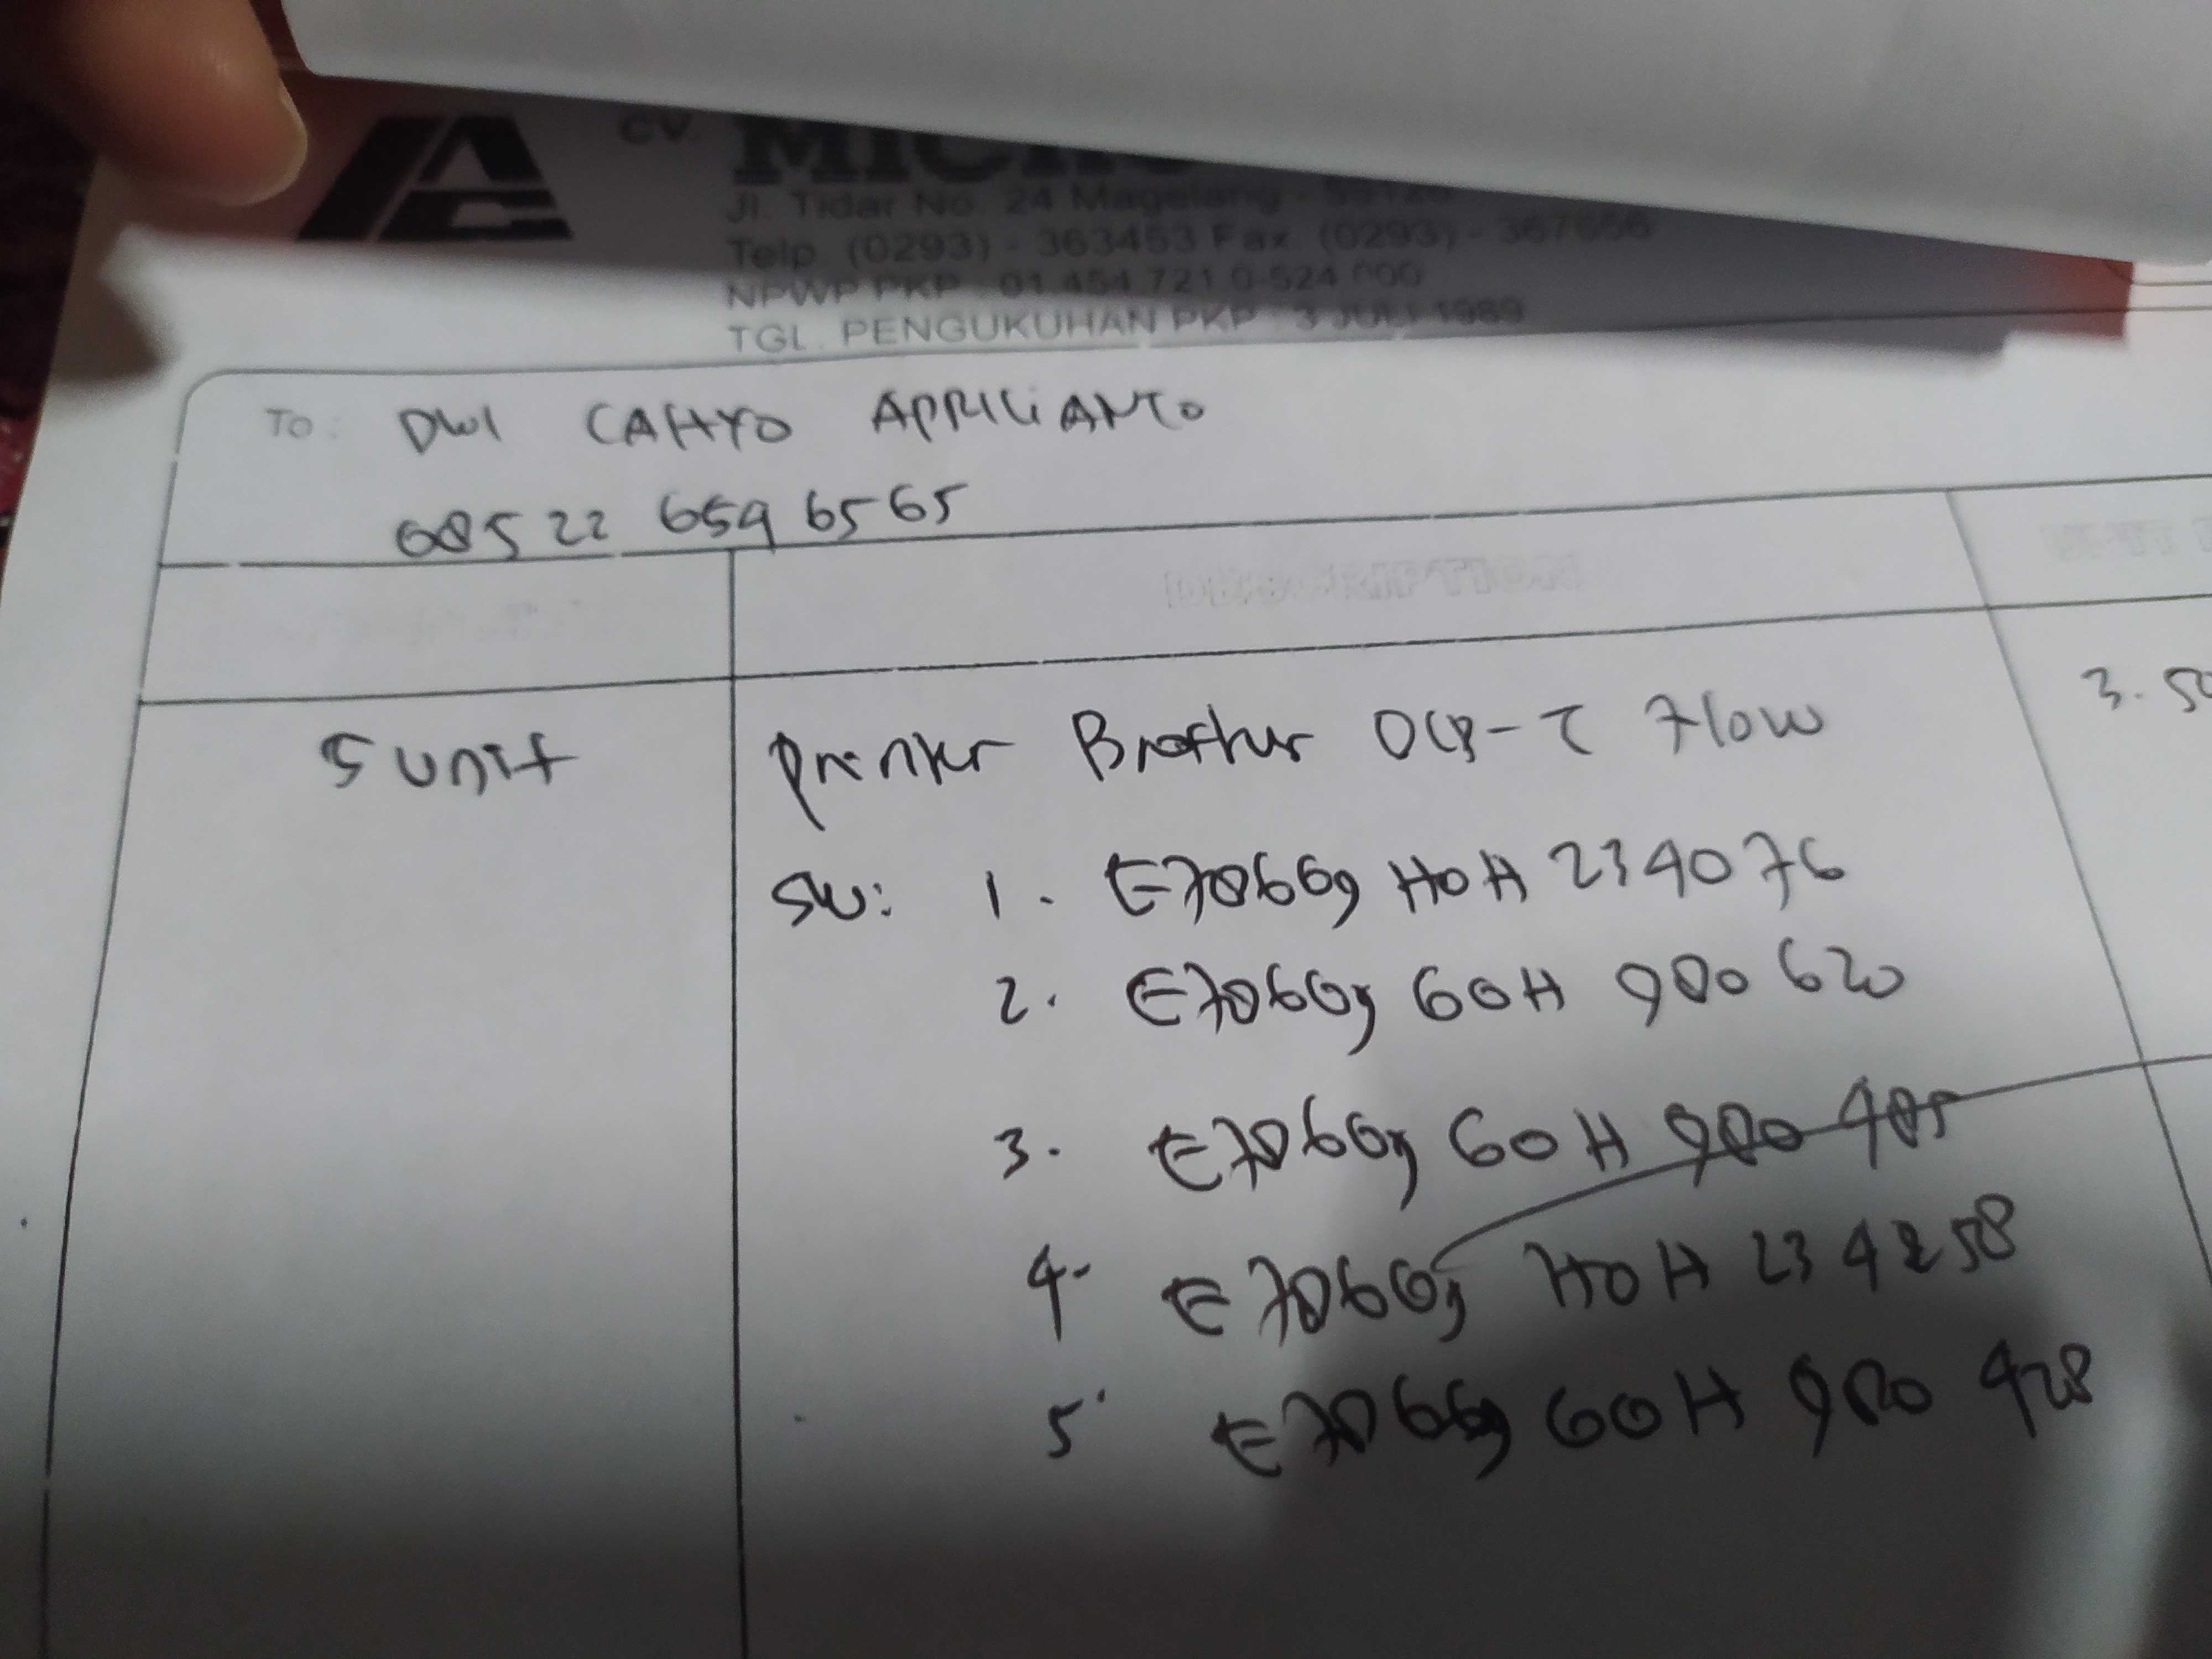 CV.
Jl. Tidar No. 24 Magelang -
Telp. (0293) - 363453 Fax. (0293) - 367656
NPWP PKP : 01.454.721.0-524.000
TGL. PENGUKUHAN PKP : 3 JULI 1989
TO : DWI CAHYO APRILIANTO
08522 659 6565
DESCRIPTION
5 unit
Printer Brother DCP-T Flow
SN: 1. E78066g HOH 234076
2. 60H 980 620
3. 60H 980 405
4. HOH 234258
5. 60H 980 428